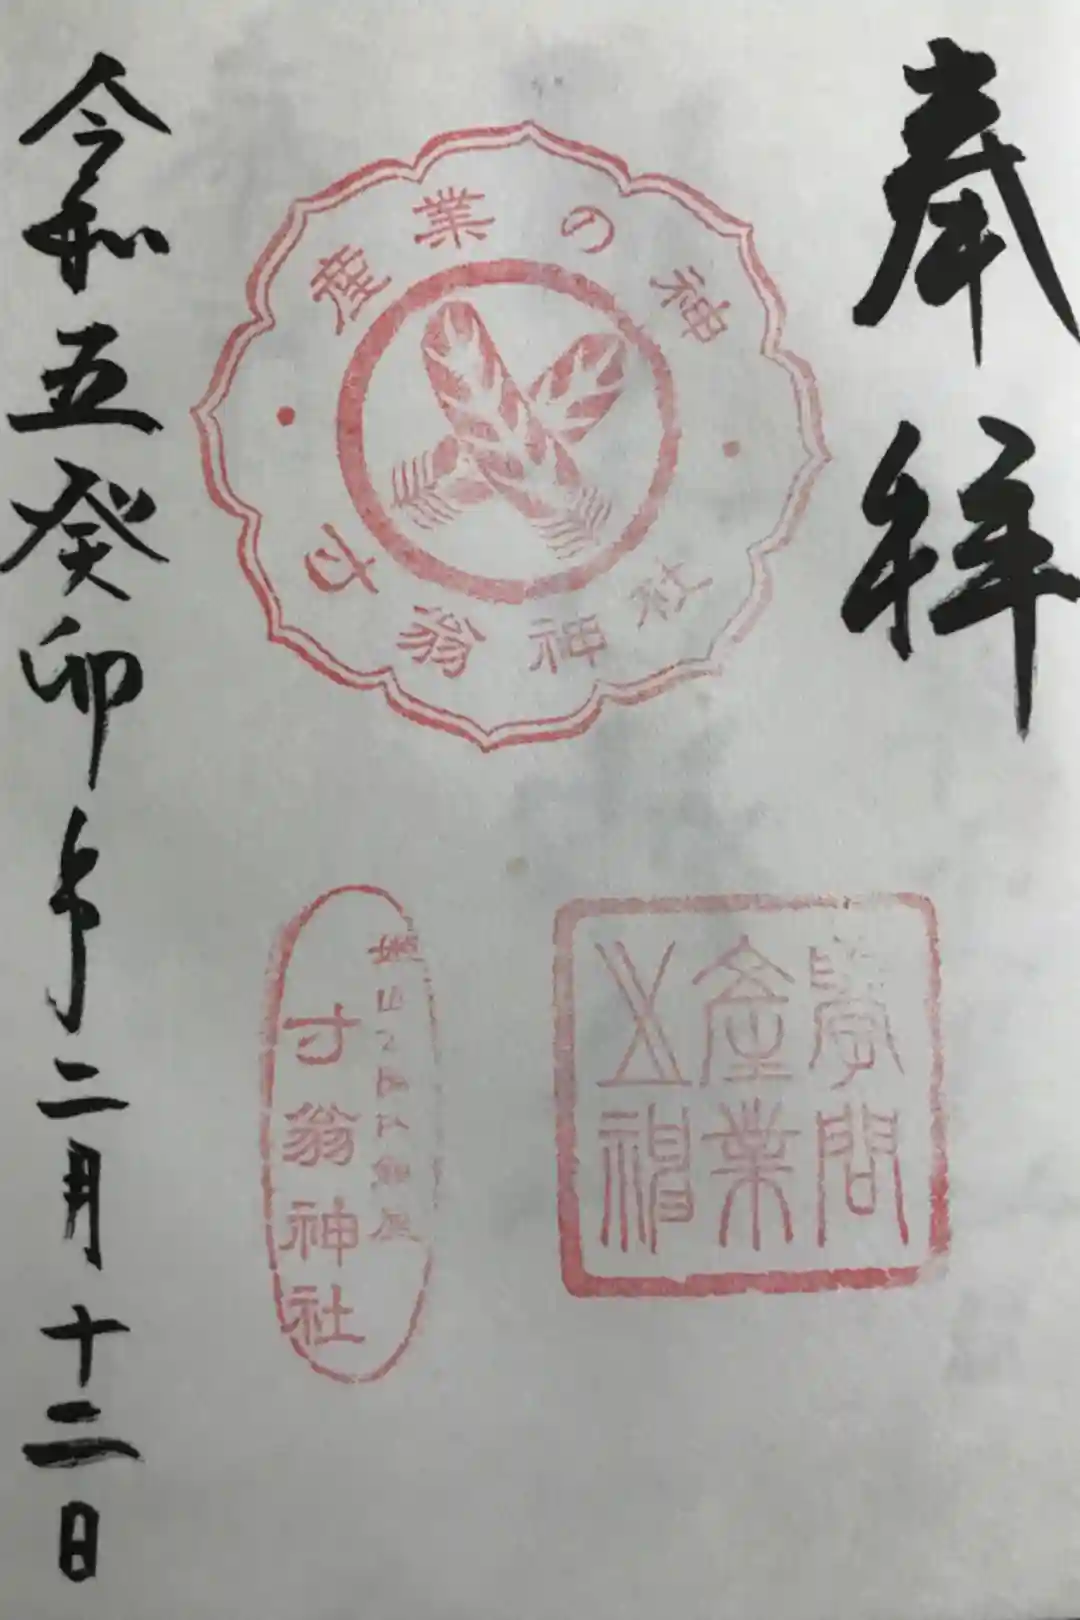 奉拝
産業の神
寸翁神社
學問
産業
之神
寸翁神社
令和五癸卯年二月十二日